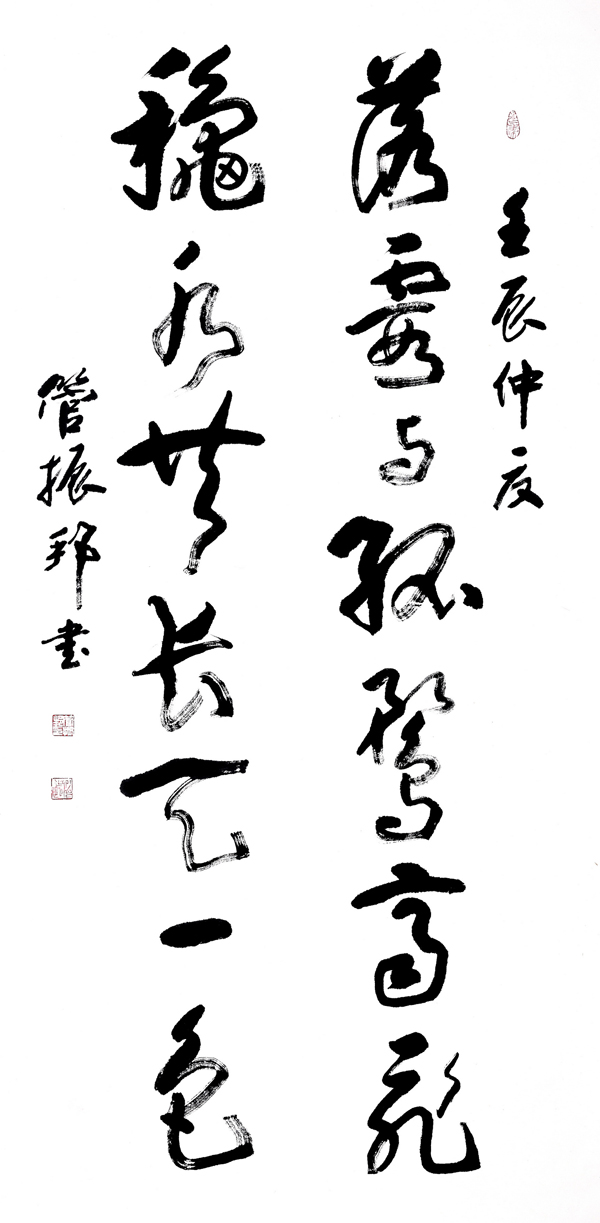 壬辰仲夏
落霞与孤鹜高飞
龝水共长天一色
管振邦书